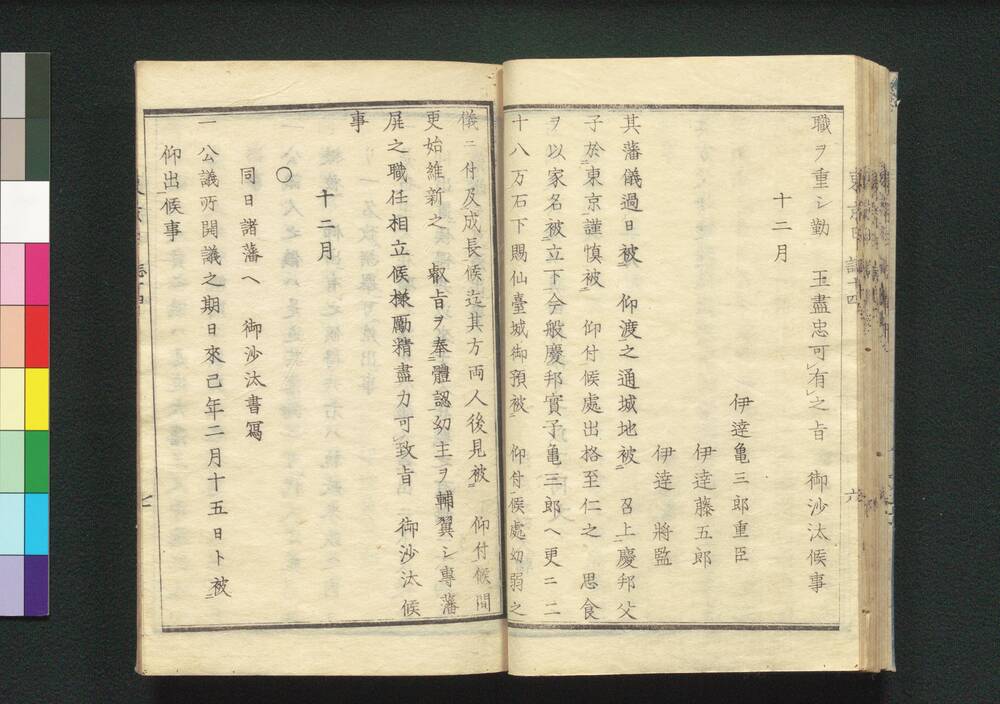 職ヲ重シ勤　王盡忠可有之旨　御沙汰候事
十二月
伊達亀三郎重臣
伊達藤五郎
伊達　將監
其藩儀過日被　仰渡之通城地被　召上慶邦父
子於東京謹慎被　仰付候處出格至仁之　思食
ヲ以家名被立下今般慶邦實子亀三郎ヘ更ニ二
十八万石下賜仙臺城御預被　仰付候處幼弱之
儀ニ付及成長候迄其方両人後見被　仰付候間
更始維新之　叡旨ヲ奉體認幼主ヲ輔翼シ專藩
屏之職任相立候様勵精盡力可致旨　御沙汰候
事
十二月
〇
同日諸藩ヘ　御沙汰書寫
一　公議所開議之期日來巳年二月十五日ト被
仰出候事
六
七